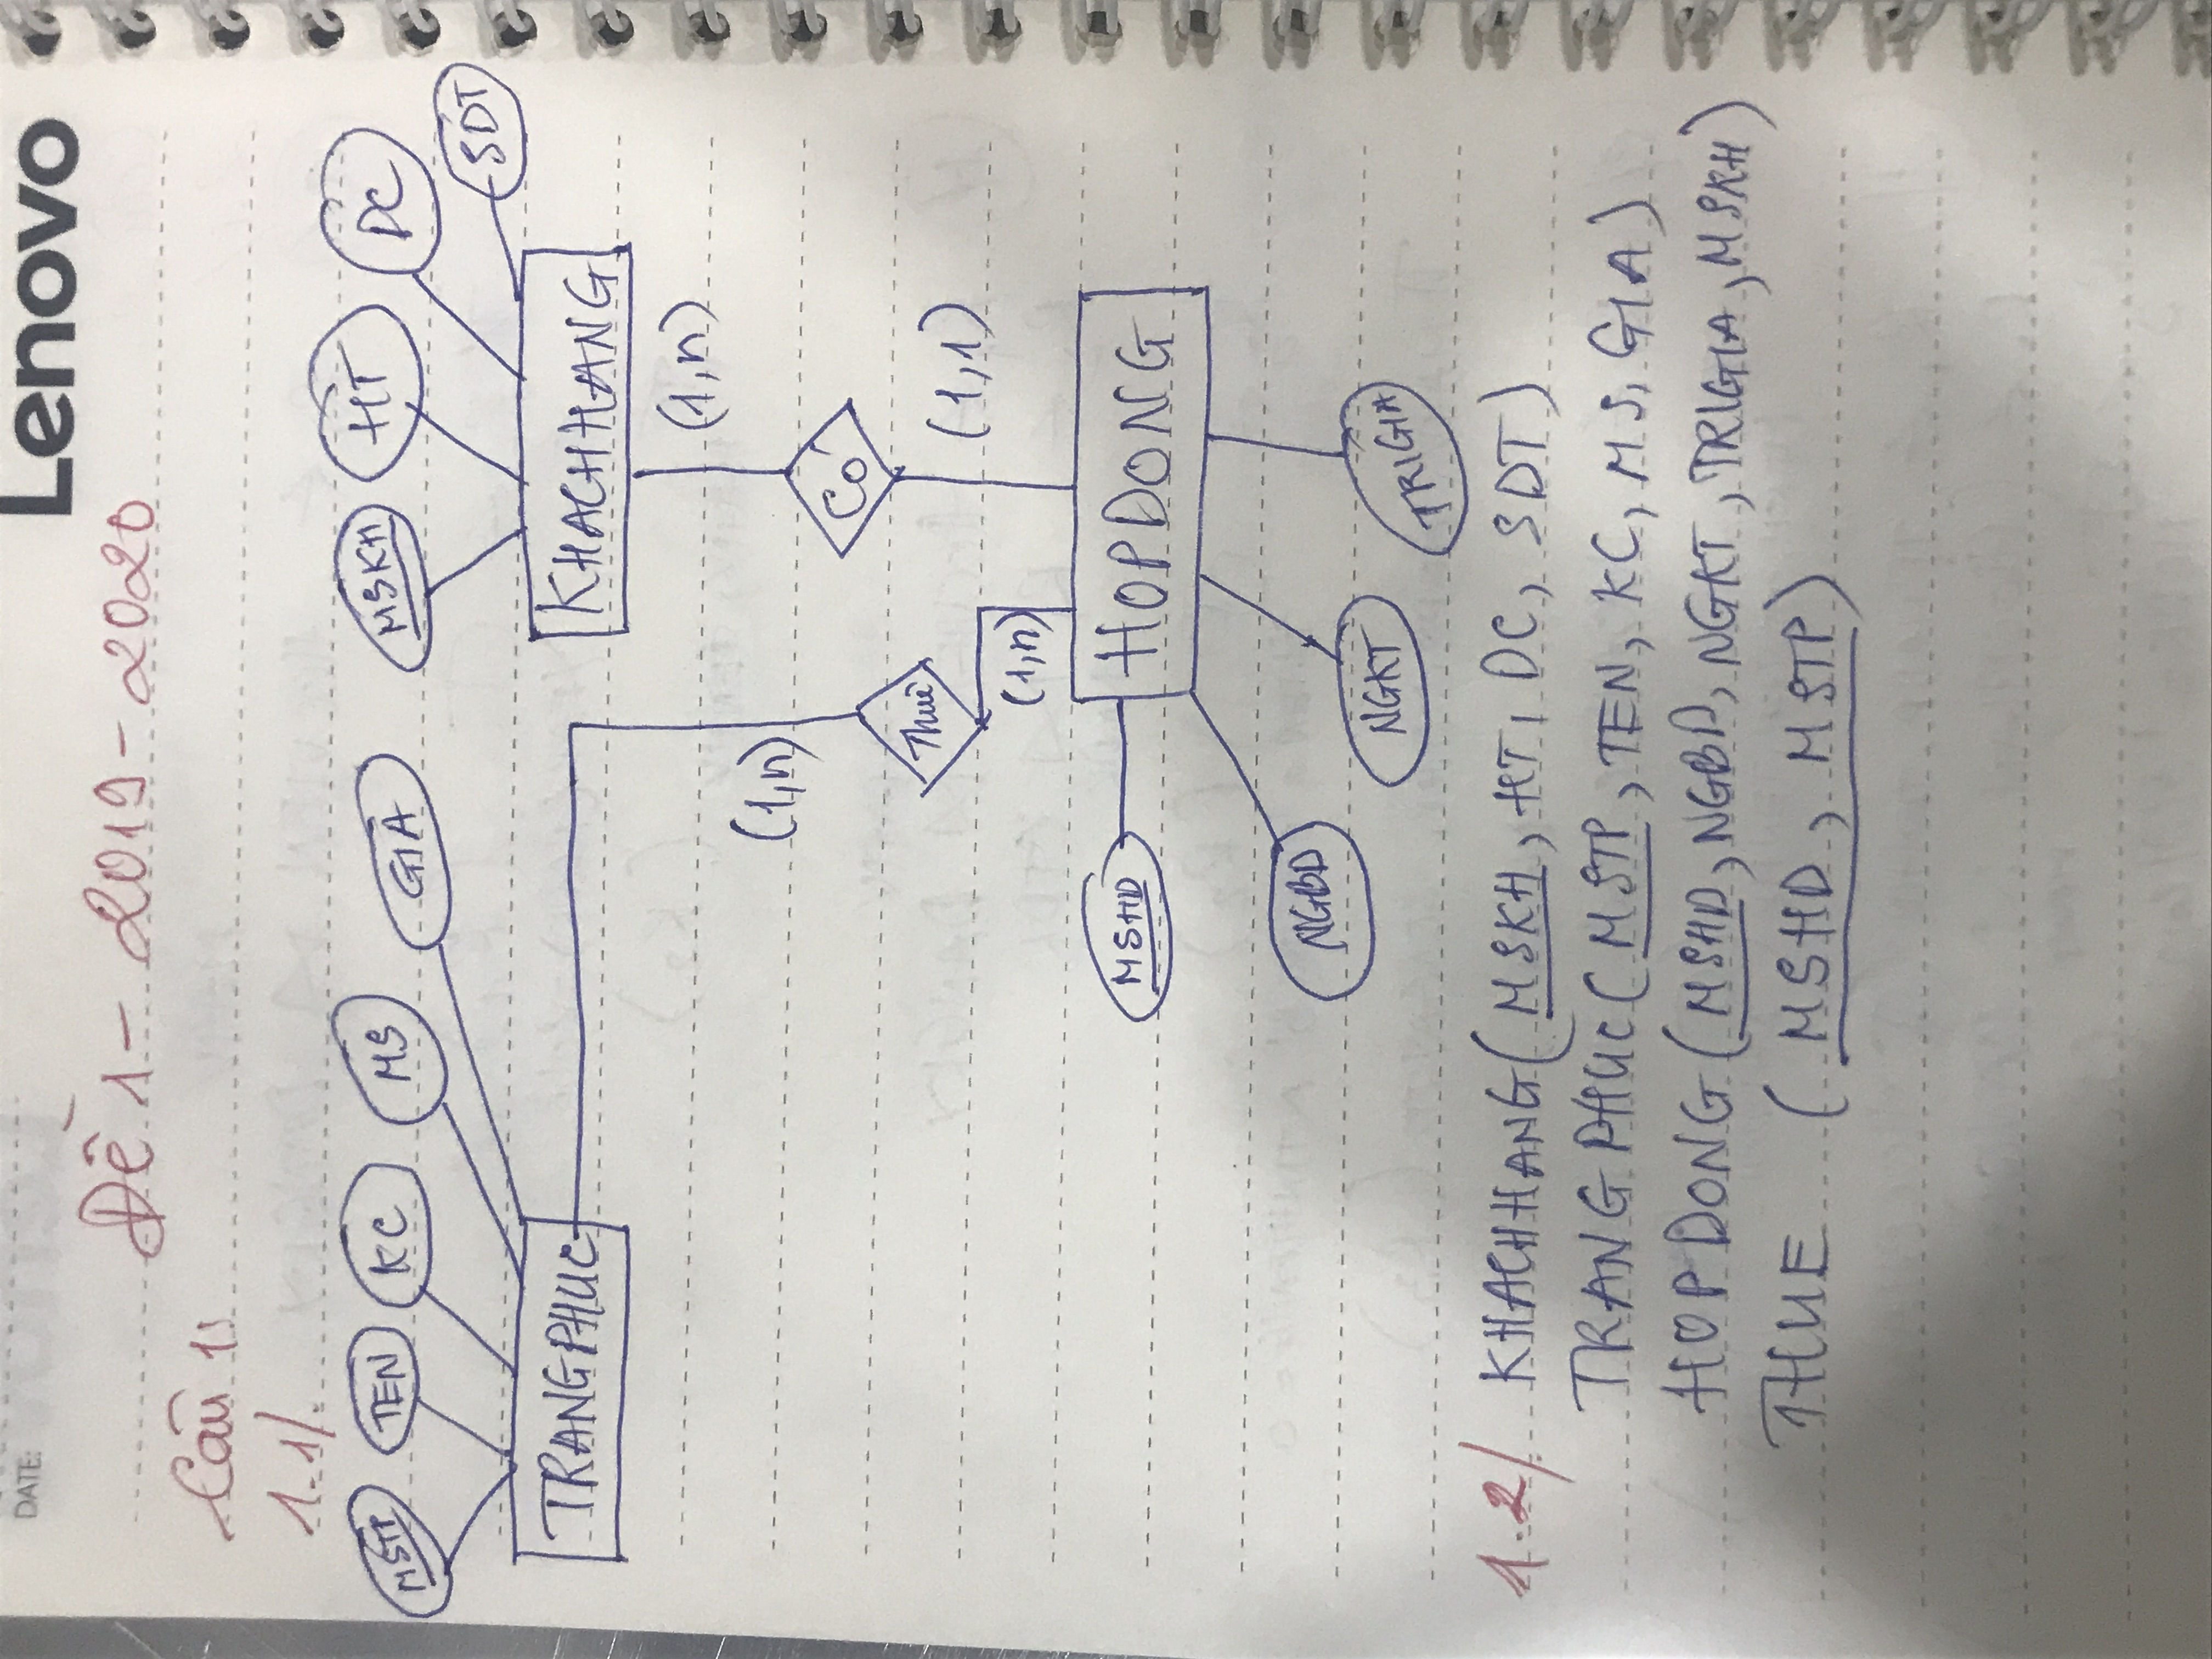 DATE:
Lenovo
Đề 1 - 2019 - 2020
Câu 1:
1.1/.
MSTP TEN KC MS GIA MSKH HT DC
SDT
TRANGPHUC KHACHHANG
(1,n)
(1,n)
Có
Thuê
(1,1)
(1,n)
MSHD HOPDONG
NGBD
NGKT TRIGIA
1.2/. KHACHHANG(MSKH, HT, DC, SDT)
TRANGPHUC(MSTP, TEN, KC, MS, GIA)
HOPDONG(MSHD, NGBD, NGKT, TRIGIA, MSKH)
THUE (MSHD, MSTP)